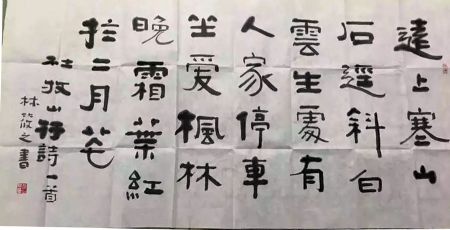 遠上寒山
石逕斜白
雲生處有
人家停車
坐愛楓林
晚霜葉紅
於二月花
杜牧山行詩一首
林筱之書